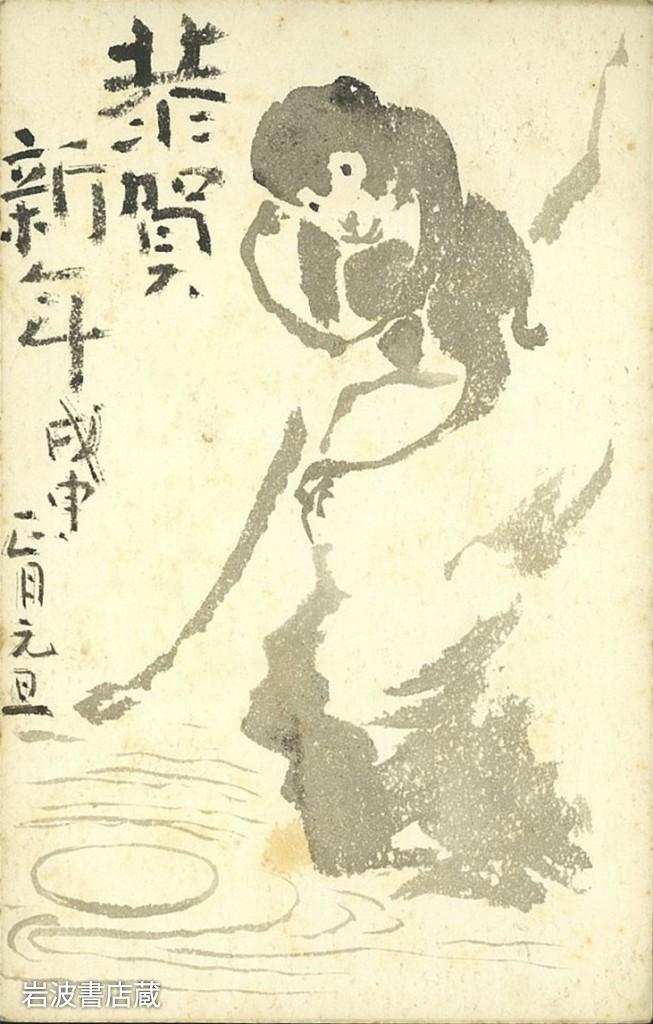 恭賀
新年
戊申
正月元旦
岩波書店蔵